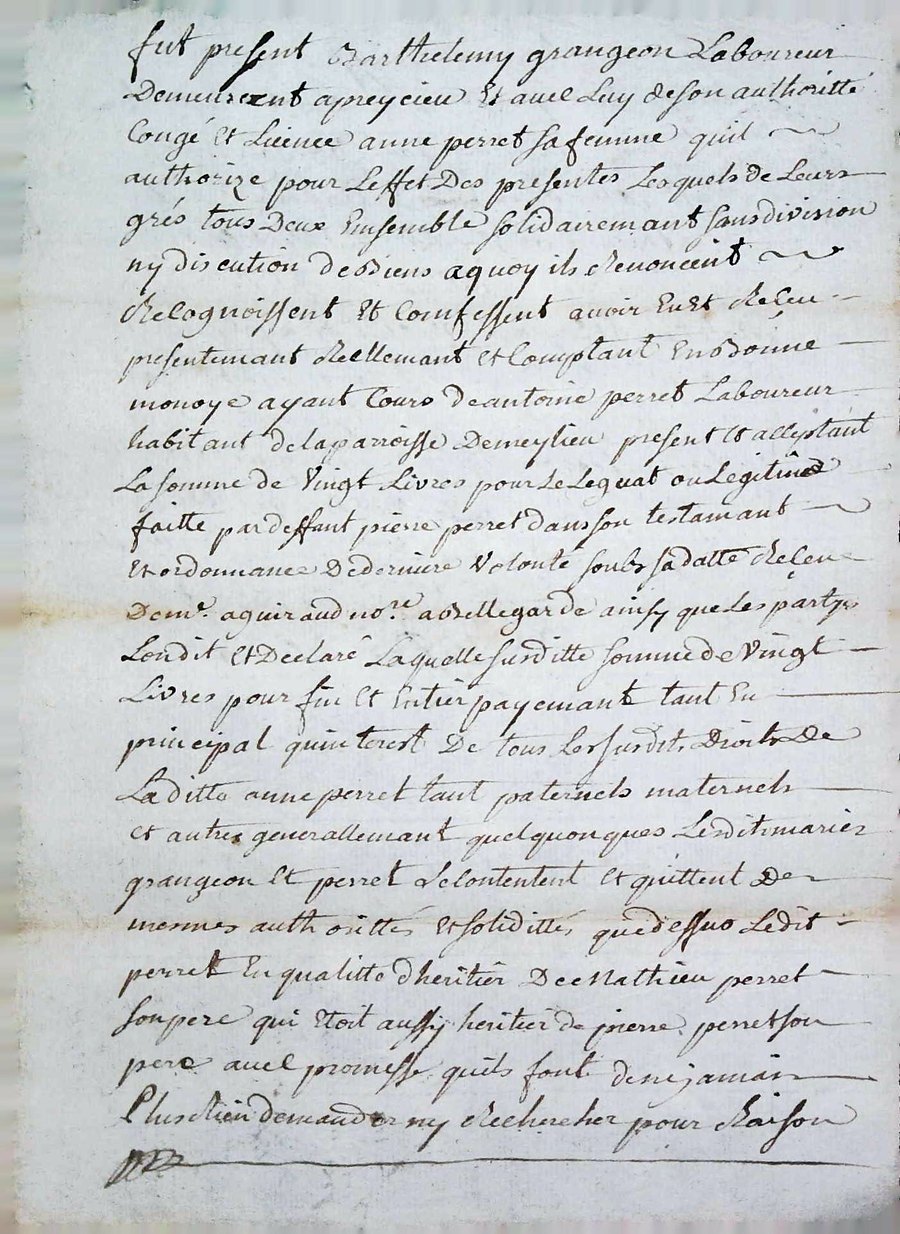 fut present Barthelemy grangeon Laboureur
Demeurent apreycieu Et avec Luy de son authoritté
Congé et Licence anne perret sa femme quil
authorize pour Leffet Des presentes Lesquels de Leurs
grés tous Deux Ensemble solidairemant sans division
ny discution de Biens aquoy ils Renoncent
Recognoissent Et Comfessent avoir Eu Et Reçeu
presentemant Reellemant et Comptant En Bonne
monoye ayant Cours de antoine perret Laboureur
habitant de la parroisse De meylieu present et acceptant
La somme de Vingt Livres pour Le Leguat ou Legitime
faitte par deffunt pierre perret dans son testamant
Et ordonnance De derniere Volonté soubs sa datte Reçeu
De mr. aguiraud nore. a Bellegarde ainsy que Les partyes
Lon dit Et Declaré Laquelle susditte somme de Vingt
Livres pour fin Et Entier payemant tant En
principal quinterest De tous Les susdits Droits De
La ditte anne perret tant paternels maternels
et autres generallemant quelquonques Lesdits mariez
grangeon Et perret se Contentent Et quittent De
mesmes authorittés Et solidittés que dessus Ledit
perret En qualitte dheritier De Mathieu perret
son pere qui Etoit aussy heritier de pierre perret son
pere avec promesse quils font de nejamais
Plus Rien demander ny Rechercher pour Raison